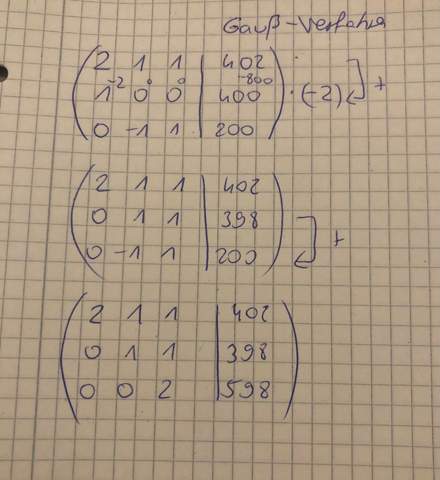 Gauß-Verfahren
2 1 1 | 402
1 -2 0 0 0 0 | 400 -800 · (-2) +
0 -1 1 | 200
2 1 1 | 402
0 1 1 | 398
0 -1 1 | 200 +
2 1 1 | 402
0 1 1 | 398
0 0 2 | 598